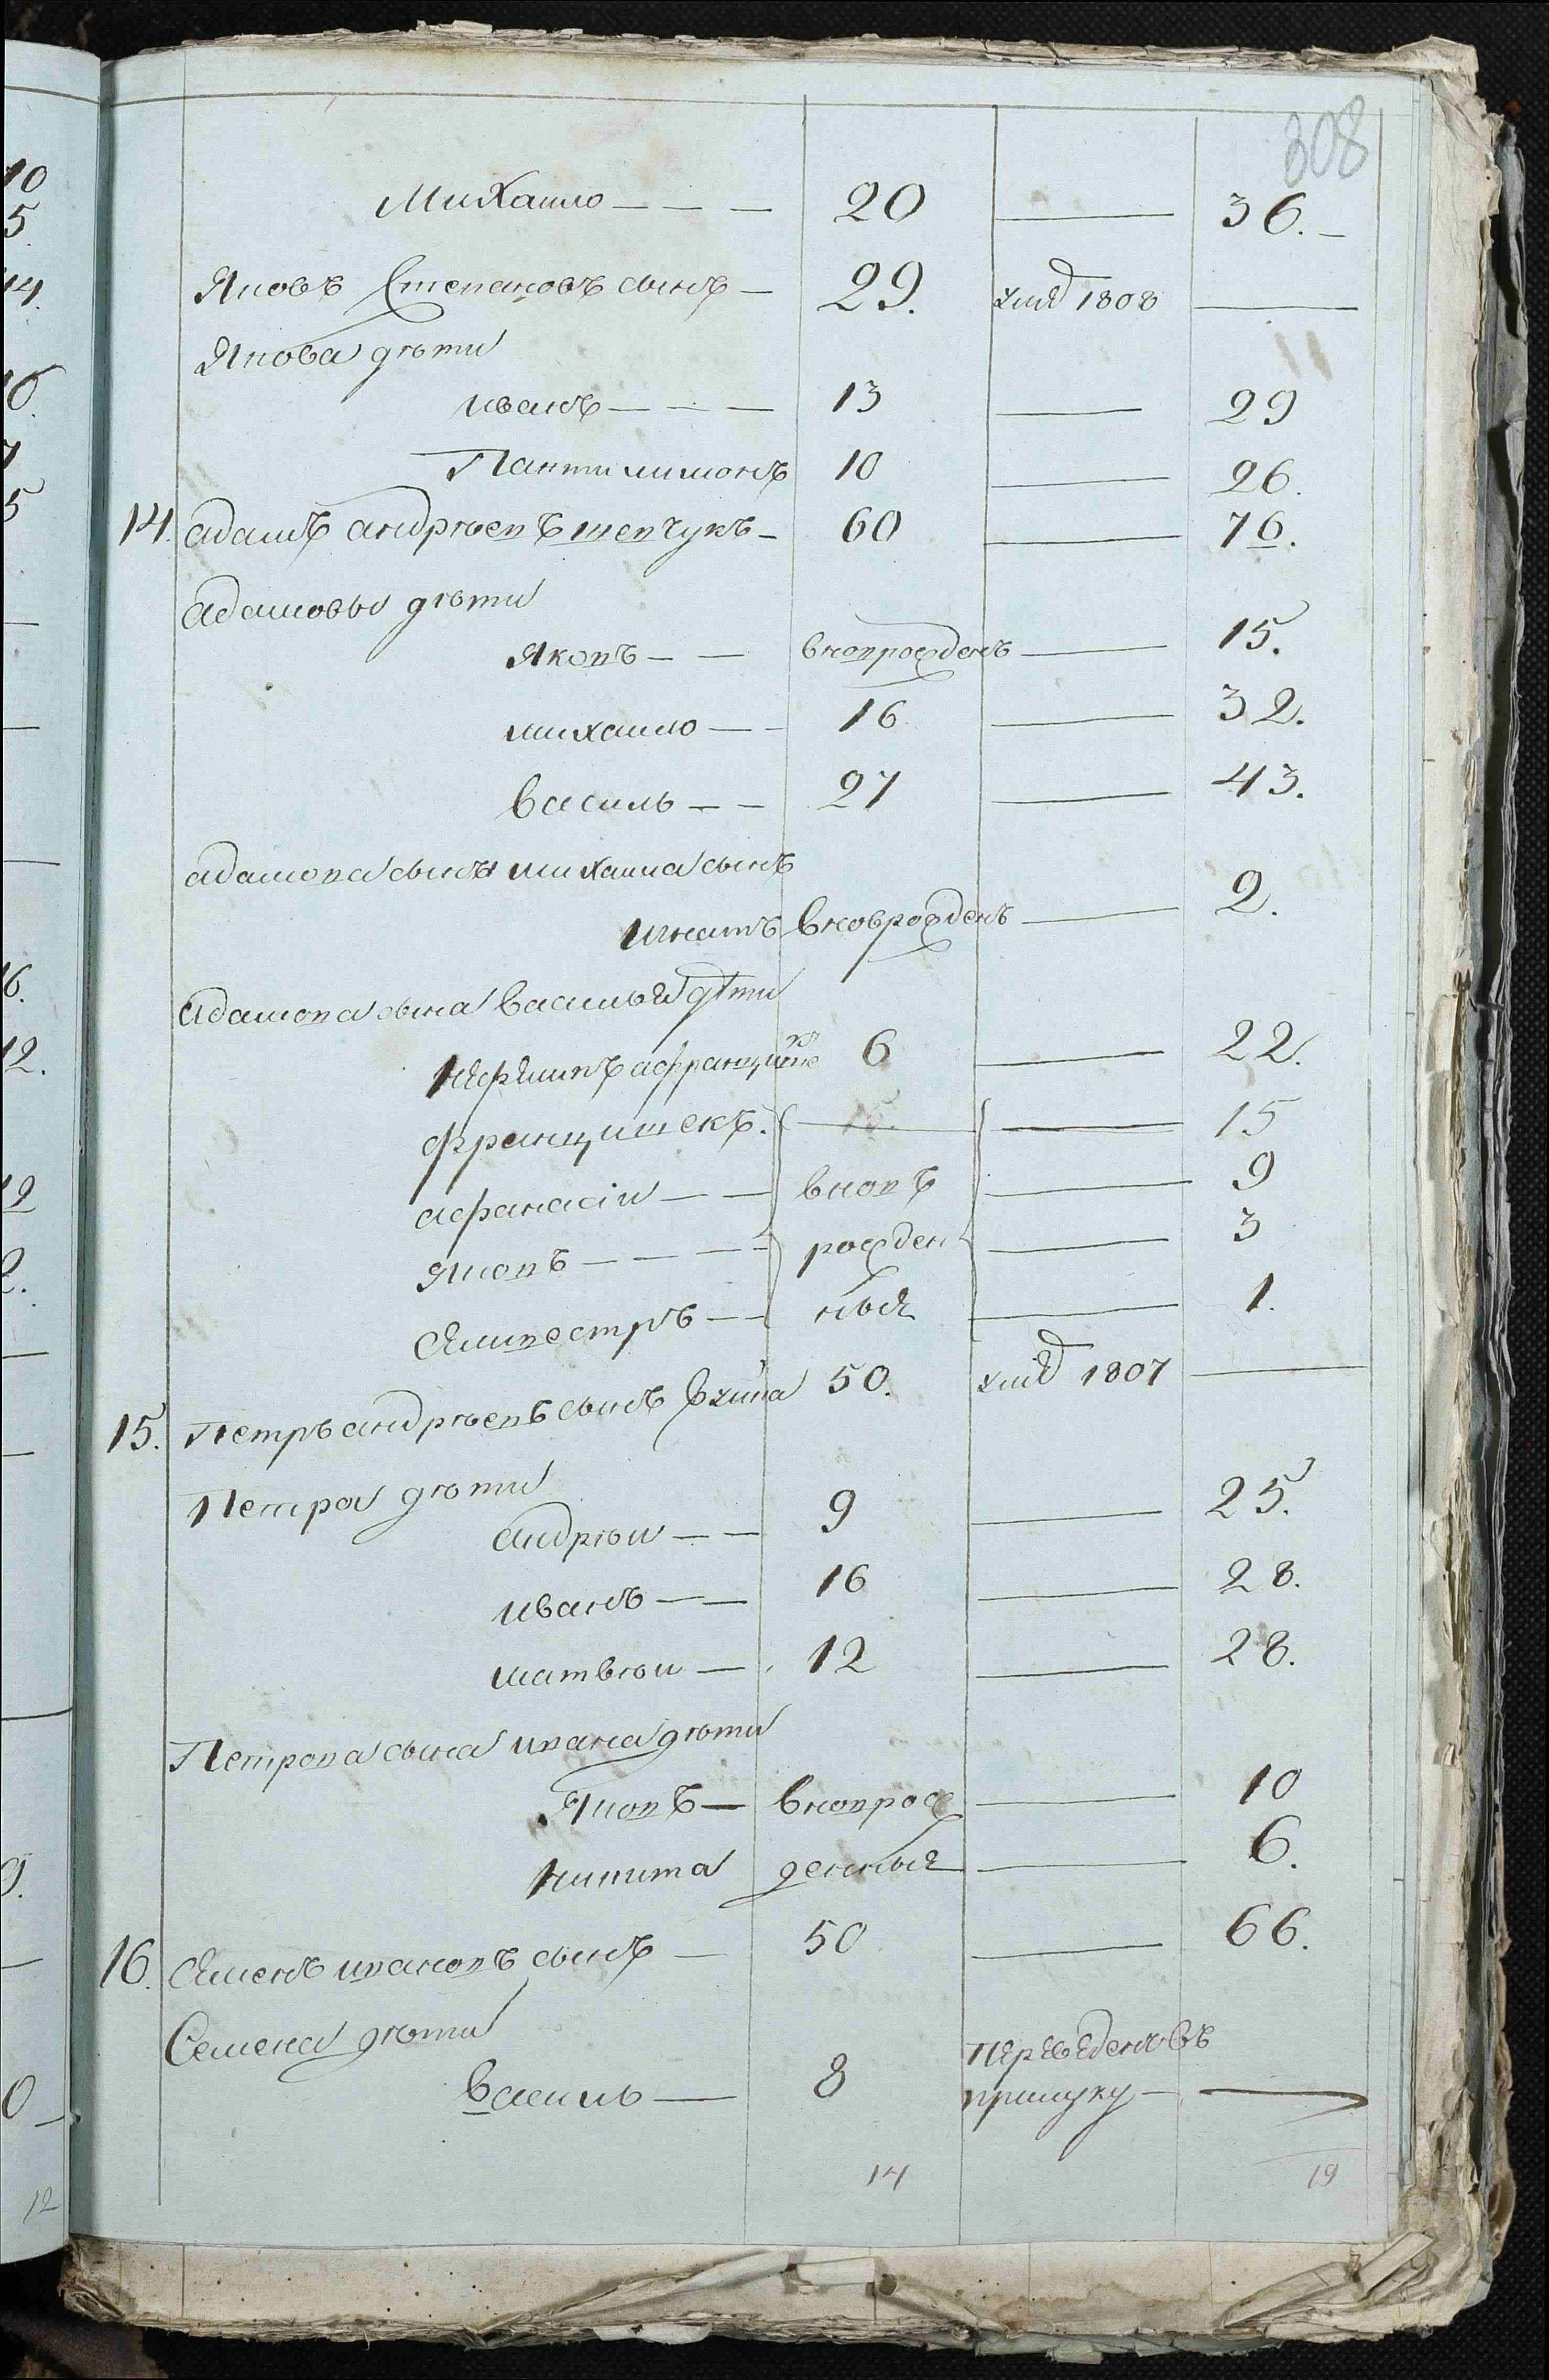 308
Михаило — — — 20 — 36. —
Яковъ Степановъ сынъ — 29. умѣ 1808 —
Якова дѣти
иванъ — — — 13 — 29
Пантилимонъ 10 — 26.
14. адамъ андрѣевъ шевчукъ — 60 — 76.
адамовы дѣти
Яковъ — — вноврожденъ — 15.
михаило — — 16 — 32.
василь — — 27 — 43.
адамова сына михаила сынъ
игнатъ вноврожденъ — 2.
адамова сына василья дѣти
6 — 22.
францишекъ. — 15
афанасіи — — вновъ — 9
Яковъ — — — рожден — 3
Силвестръ — — ныя — 1.
15. Петръ андрѣевъ сынъ 50. умѣ 1807 —
Петра дѣти
андрѣи — — 9 — 25.
иванъ — — 16 — 28.
матвѣи — 12 — 28.
Петрова сына ивана дѣти
Яковъ — внoврож — 10
никита денныя — 6.
16. Семенъ ивановъ сынъ — 50 — 66.
Семена дѣти
василь — 8 переведенъ въ
прилуку — —
14 19